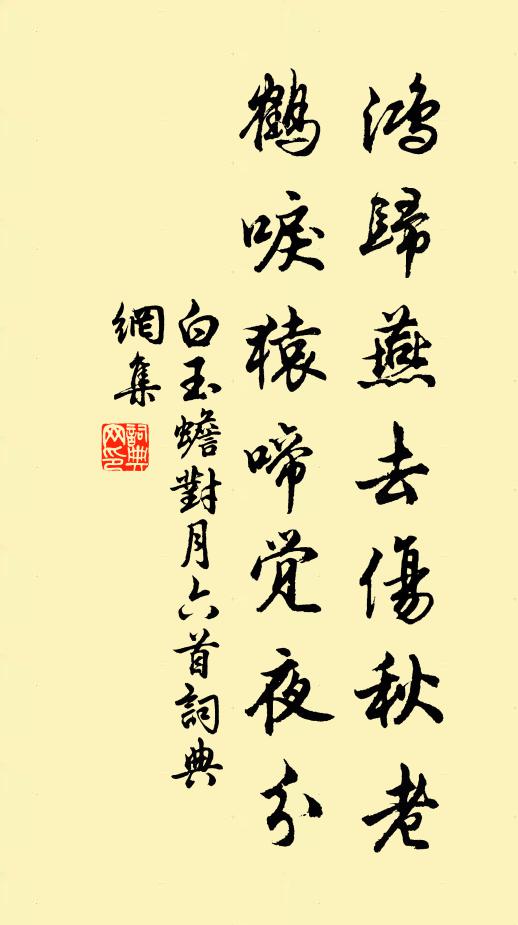 鴻歸燕去傷秋老
鶴唳猿啼覺夜分
白玉蟾對月六首詞典
網集
詞典
网印